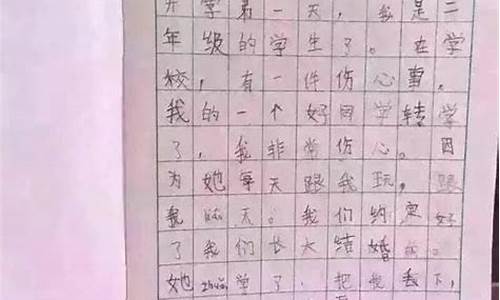 开学第一天，我是二
年级的学生了。在学
校，有一件伤心事，
我的一个好同学转学
了，我非常伤心。因
为她每天跟我玩，跟
我聊天。我们约定好
了我们长大结婚的。
她zhuǎn学了，把我丢下，